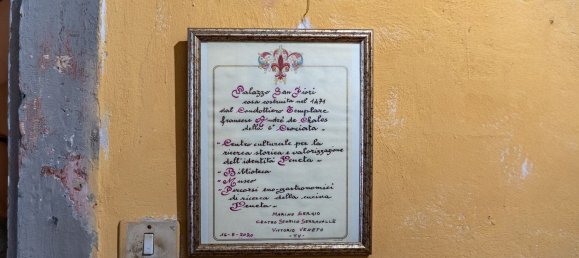 Palazzo San Fiori
casa costruita nel 1471
dal Condottiero Templare
francese Andrè de Chalos
della 6° Crociata.
- Centro culturale per la
ricerca storica e valorizzazione
dell'identità Veneta -
- Biblioteca
- Museo
- Percorsi eno-gastronomici
di ricerca della cucina
Veneta -
MARINO SERGIO
CENTRO STORICO SERRAVALLE
VITTORIO VENETO
-TV-
16-8-2020